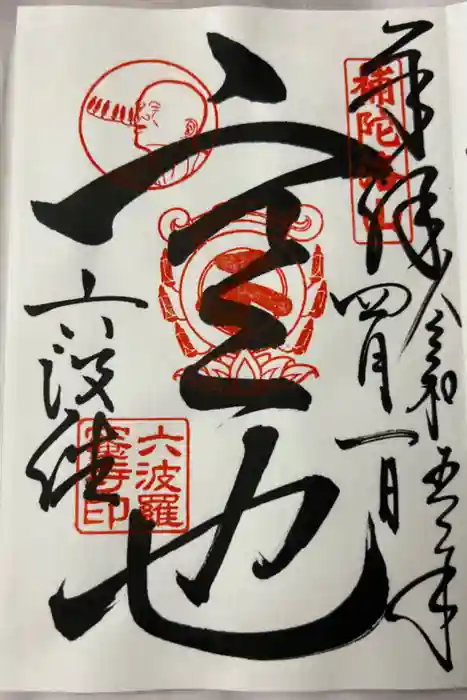 奉拝
令和五年
四月一日
補陀洛山
空也
六波羅
六波羅
蜜寺印